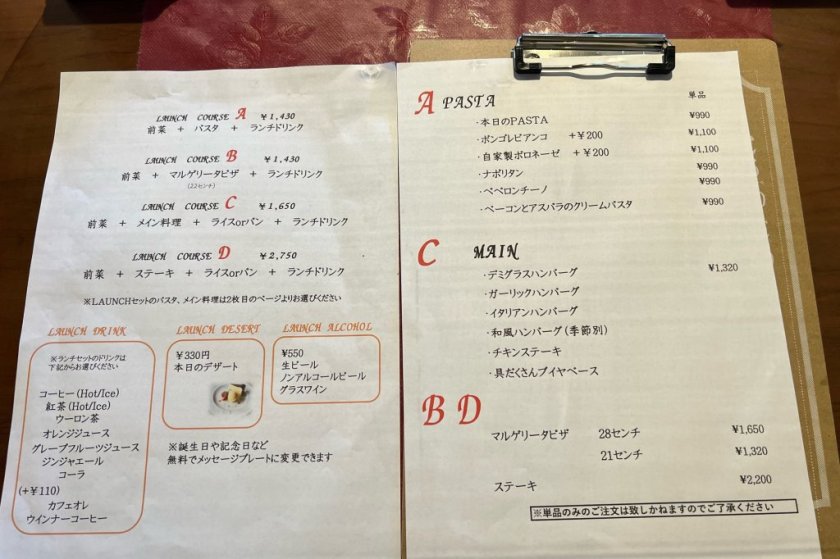 LAUNCH COURSE A ¥1,430
前菜 + パスタ + ランチドリンク
LAUNCH COURSE B ¥1,430
前菜 + マルゲリータピザ + ランチドリンク
(22センチ)
LAUNCH COURSE C ¥1,650
前菜 + メイン料理 + ライスorパン + ランチドリンク
LAUNCH COURSE D ¥2,750
前菜 + ステーキ + ライスorパン + ランチドリンク
※LAUNCHセットのパスタ、メイン料理は2枚目のページよりお選びください
LAUNCH DRINK
※ランチセットのドリンクは
下記からお選びください
コーヒー(Hot/Ice)
紅茶(Hot/Ice)
ウーロン茶
オレンジジュース
グレープフルーツジュース
ジンジャエール
コーラ
(+¥110)
カフェオレ
ウインナーコーヒー
LAUNCH DESERT
¥330円
本日のデザート
LAUNCH ALCOHOL
¥550
生ビール
ノンアルコールビール
グラスワイン
※誕生日や記念日など
無料でメッセージプレートに変更できます
A PASTA 単品
・本日のPASTA ¥990
・ボンゴレビアンコ +¥200 ¥1,100
・自家製ボロネーゼ +¥200 ¥1,100
・ナポリタン ¥990
・ペペロンチーノ ¥990
・ベーコンとアスパラのクリームパスタ ¥990
C MAIN
・デミグラスハンバーグ ¥1,320
・ガーリックハンバーグ
・イタリアンハンバーグ
・和風ハンバーグ(季節別)
・チキンステーキ
・具だくさんブイヤベース
B D
マルゲリータピザ 28センチ ¥1,650
21センチ ¥1,320
ステーキ ¥2,200
※単品のみのご注文は致しかねますのでご了承ください